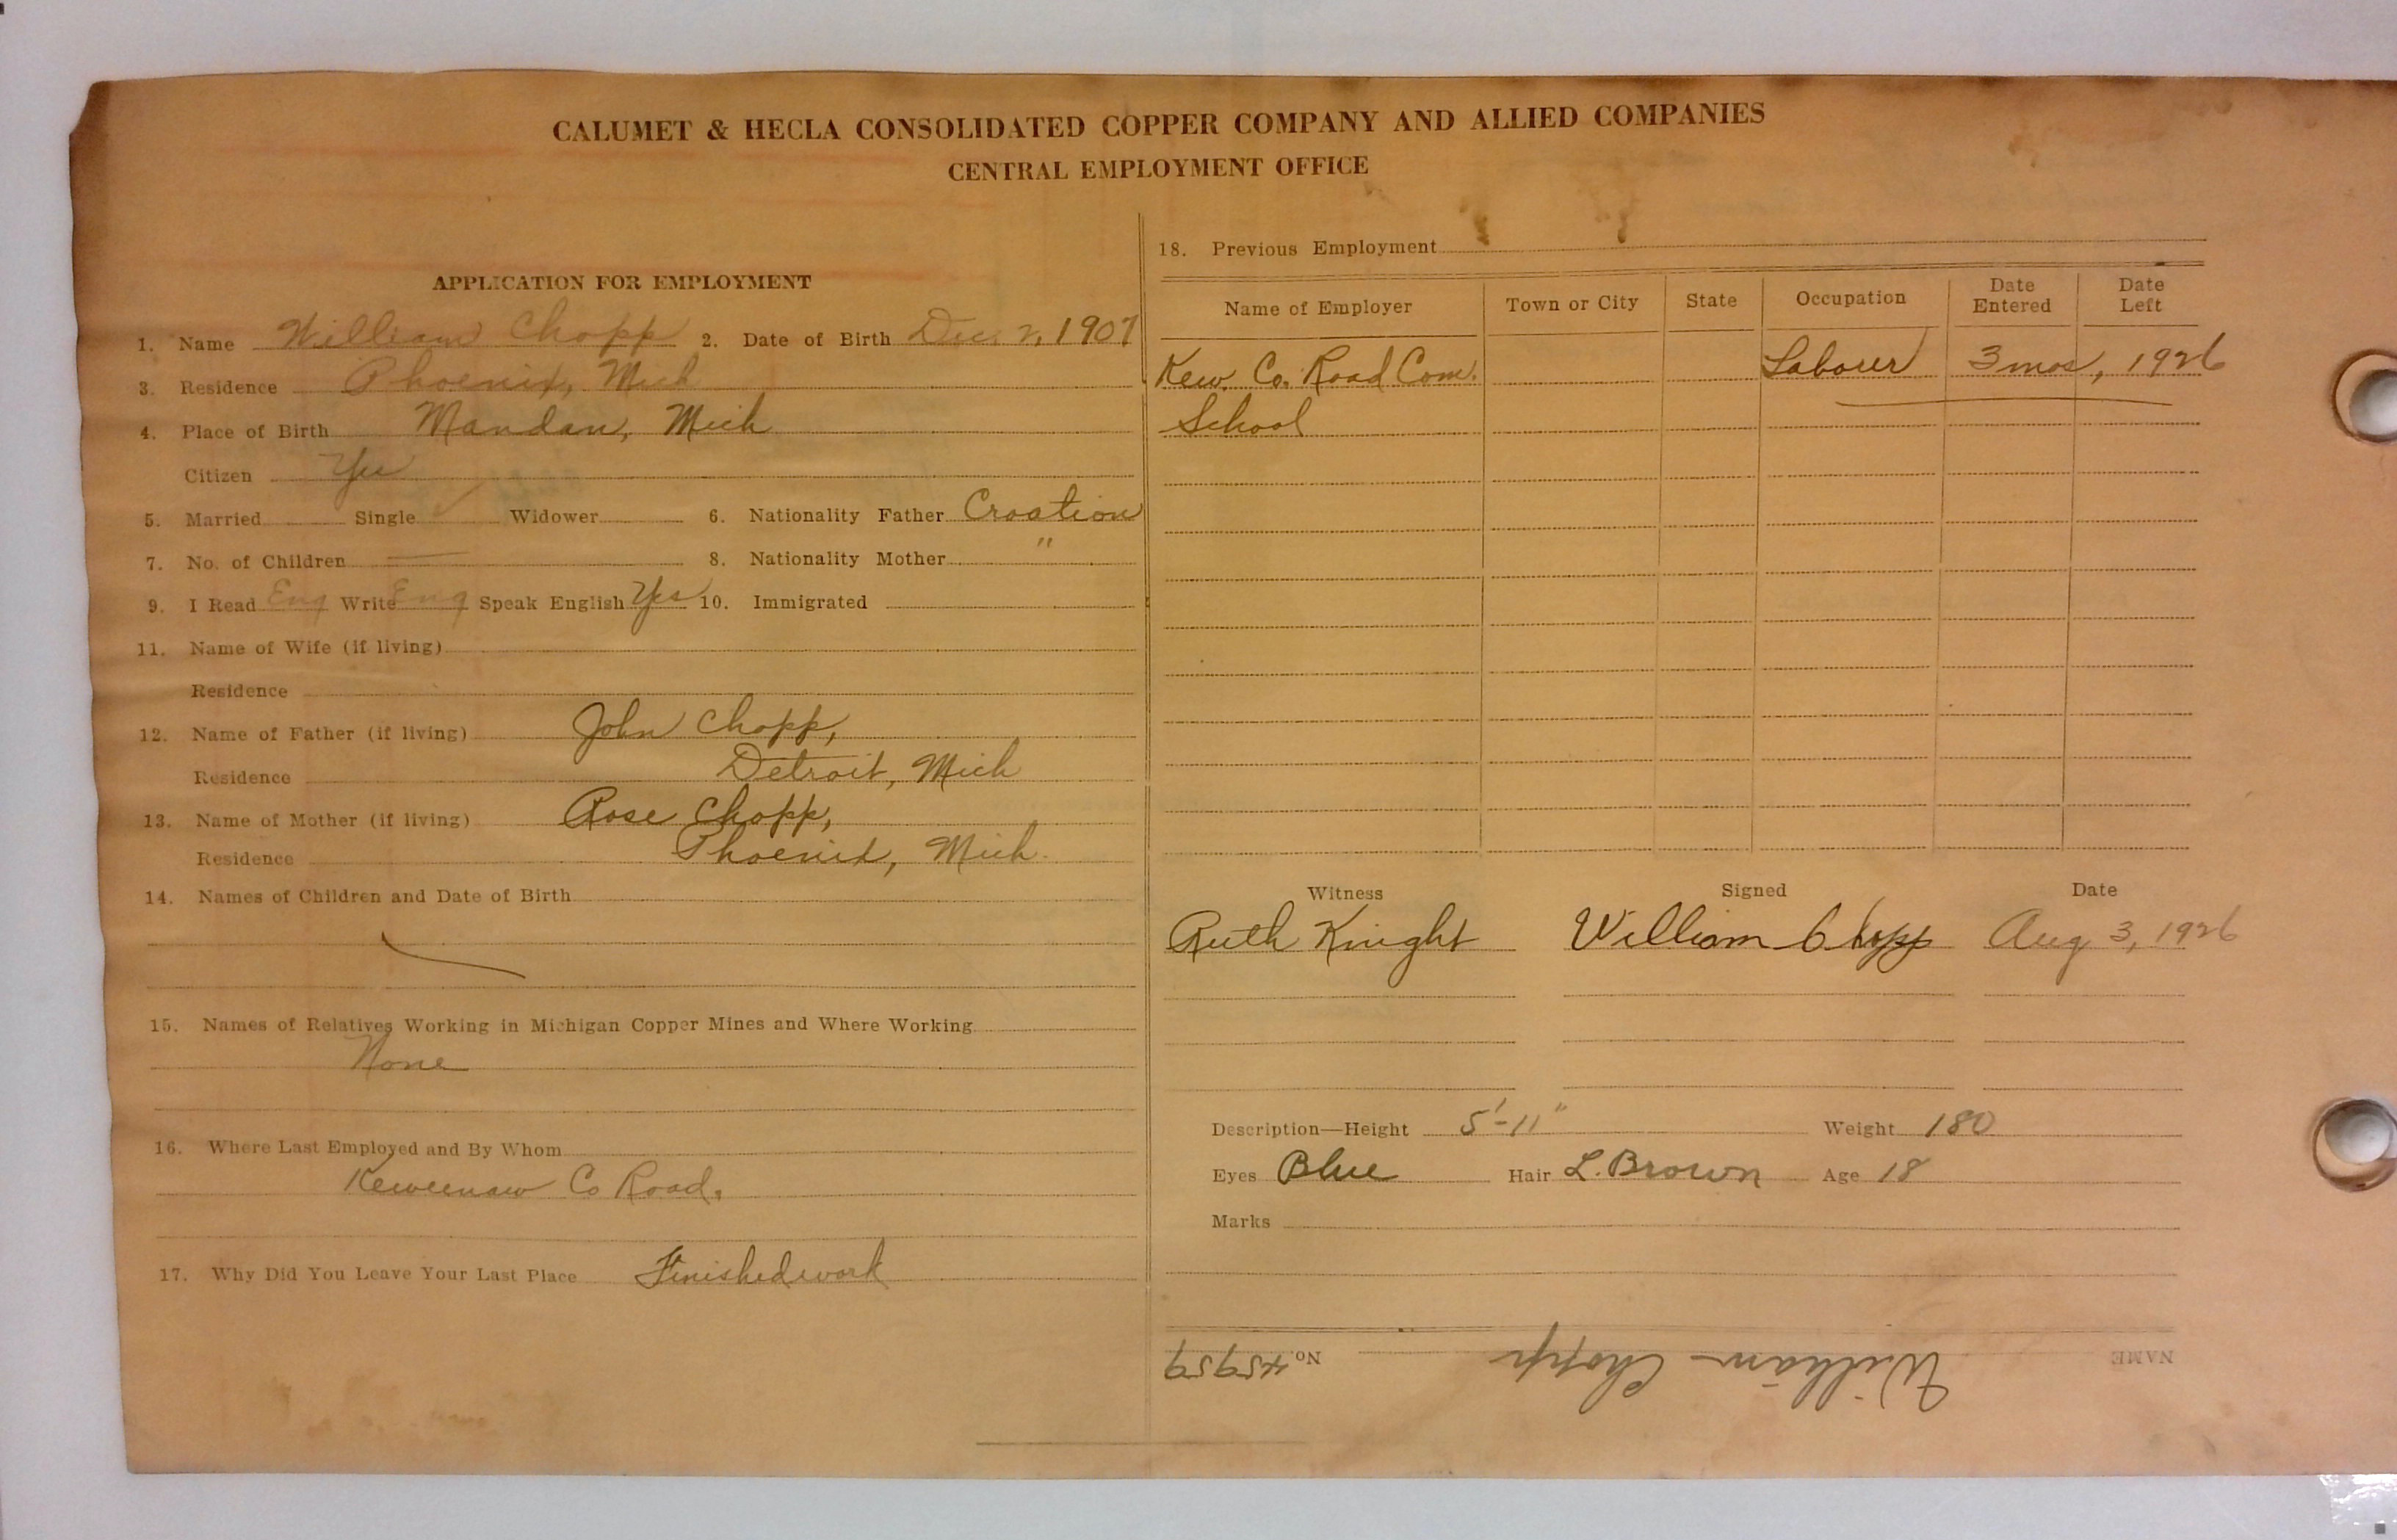 CALUMET & HECLA CONSOLIDATED COPPER COMPANY AND ALLIED COMPANIES
CENTRAL EMPLOYMENT OFFICE
APPLICATION FOR EMPLOYMENT
1. Name William Chopp 2. Date of Birth Dec. 2, 1907
3. Residence Phoenix, Mich
4. Place of Birth Mandan, Mich
Citizen Yes
5. Married Single ✓ Widower 6. Nationality Father Croation
7. No. of Children — 8. Nationality Mother "
9. I Read Eng Write Eng Speak English Yes 10. Immigrated
11. Name of Wife (if living)
Residence
12. Name of Father (if living) John Chopp,
Residence Detroit, Mich
13. Name of Mother (if living) Rose Chopp,
Residence Phoenix, Mich.
14. Names of Children and Date of Birth
15. Names of Relatives Working in Michigan Copper Mines and Where Working
None
16. Where Last Employed and By Whom
Keweenaw Co Road.
17. Why Did You Leave Your Last Place Finished work
18. Previous Employment
Name of Employer Town or City State Occupation Date Entered Date Left
Kew. Co. Road Com. Labourer 3 mos, 1926
School
Witness Signed Date
Ruth Knight William Chopp Aug 3, 1926
Description—Height 5'-11" Weight 180
Eyes Blue Hair L. Brown Age 18
Marks
NAME William Chopp No. 45959